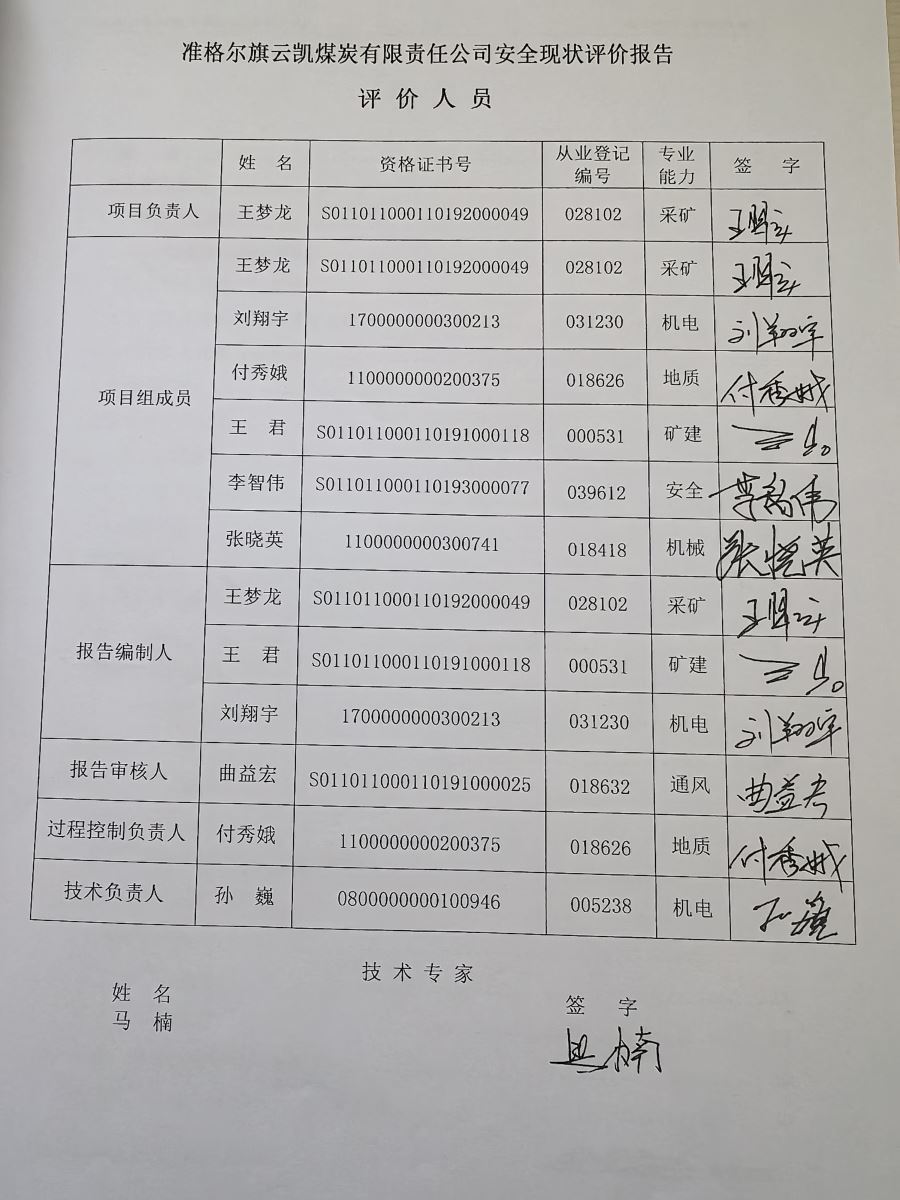 准格尔旗云凯煤炭有限责任公司安全现状评价报告
评价人员
姓 名 资格证书号 从业登记编号 专业能力 签 字
项目负责人 王梦龙 S011011000110192000049 028102 采矿 王梦龙
项目组成员 王梦龙 S011011000110192000049 028102 采矿 王梦龙
刘翔宇 1700000000300213 031230 机电 刘翔宇
付秀娥 1100000000200375 018626 地质 付秀娥
王 君 S011011000110191000118 000531 矿建 王君
李智伟 S011011000110193000077 039612 安全 李智伟
张晓英 1100000000300741 018418 机械 张晓英
报告编制人 王梦龙 S011011000110192000049 028102 采矿 王梦龙
王 君 S011011000110191000118 000531 矿建 王君
刘翔宇 1700000000300213 031230 机电 刘翔宇
报告审核人 曲益宏 S011011000110191000025 018632 通风 曲益宏
过程控制负责人 付秀娥 1100000000200375 018626 地质 付秀娥
技术负责人 孙 巍 0800000000100946 005238 机电 孙巍
技术专家
姓 名 签 字
马 楠 马楠